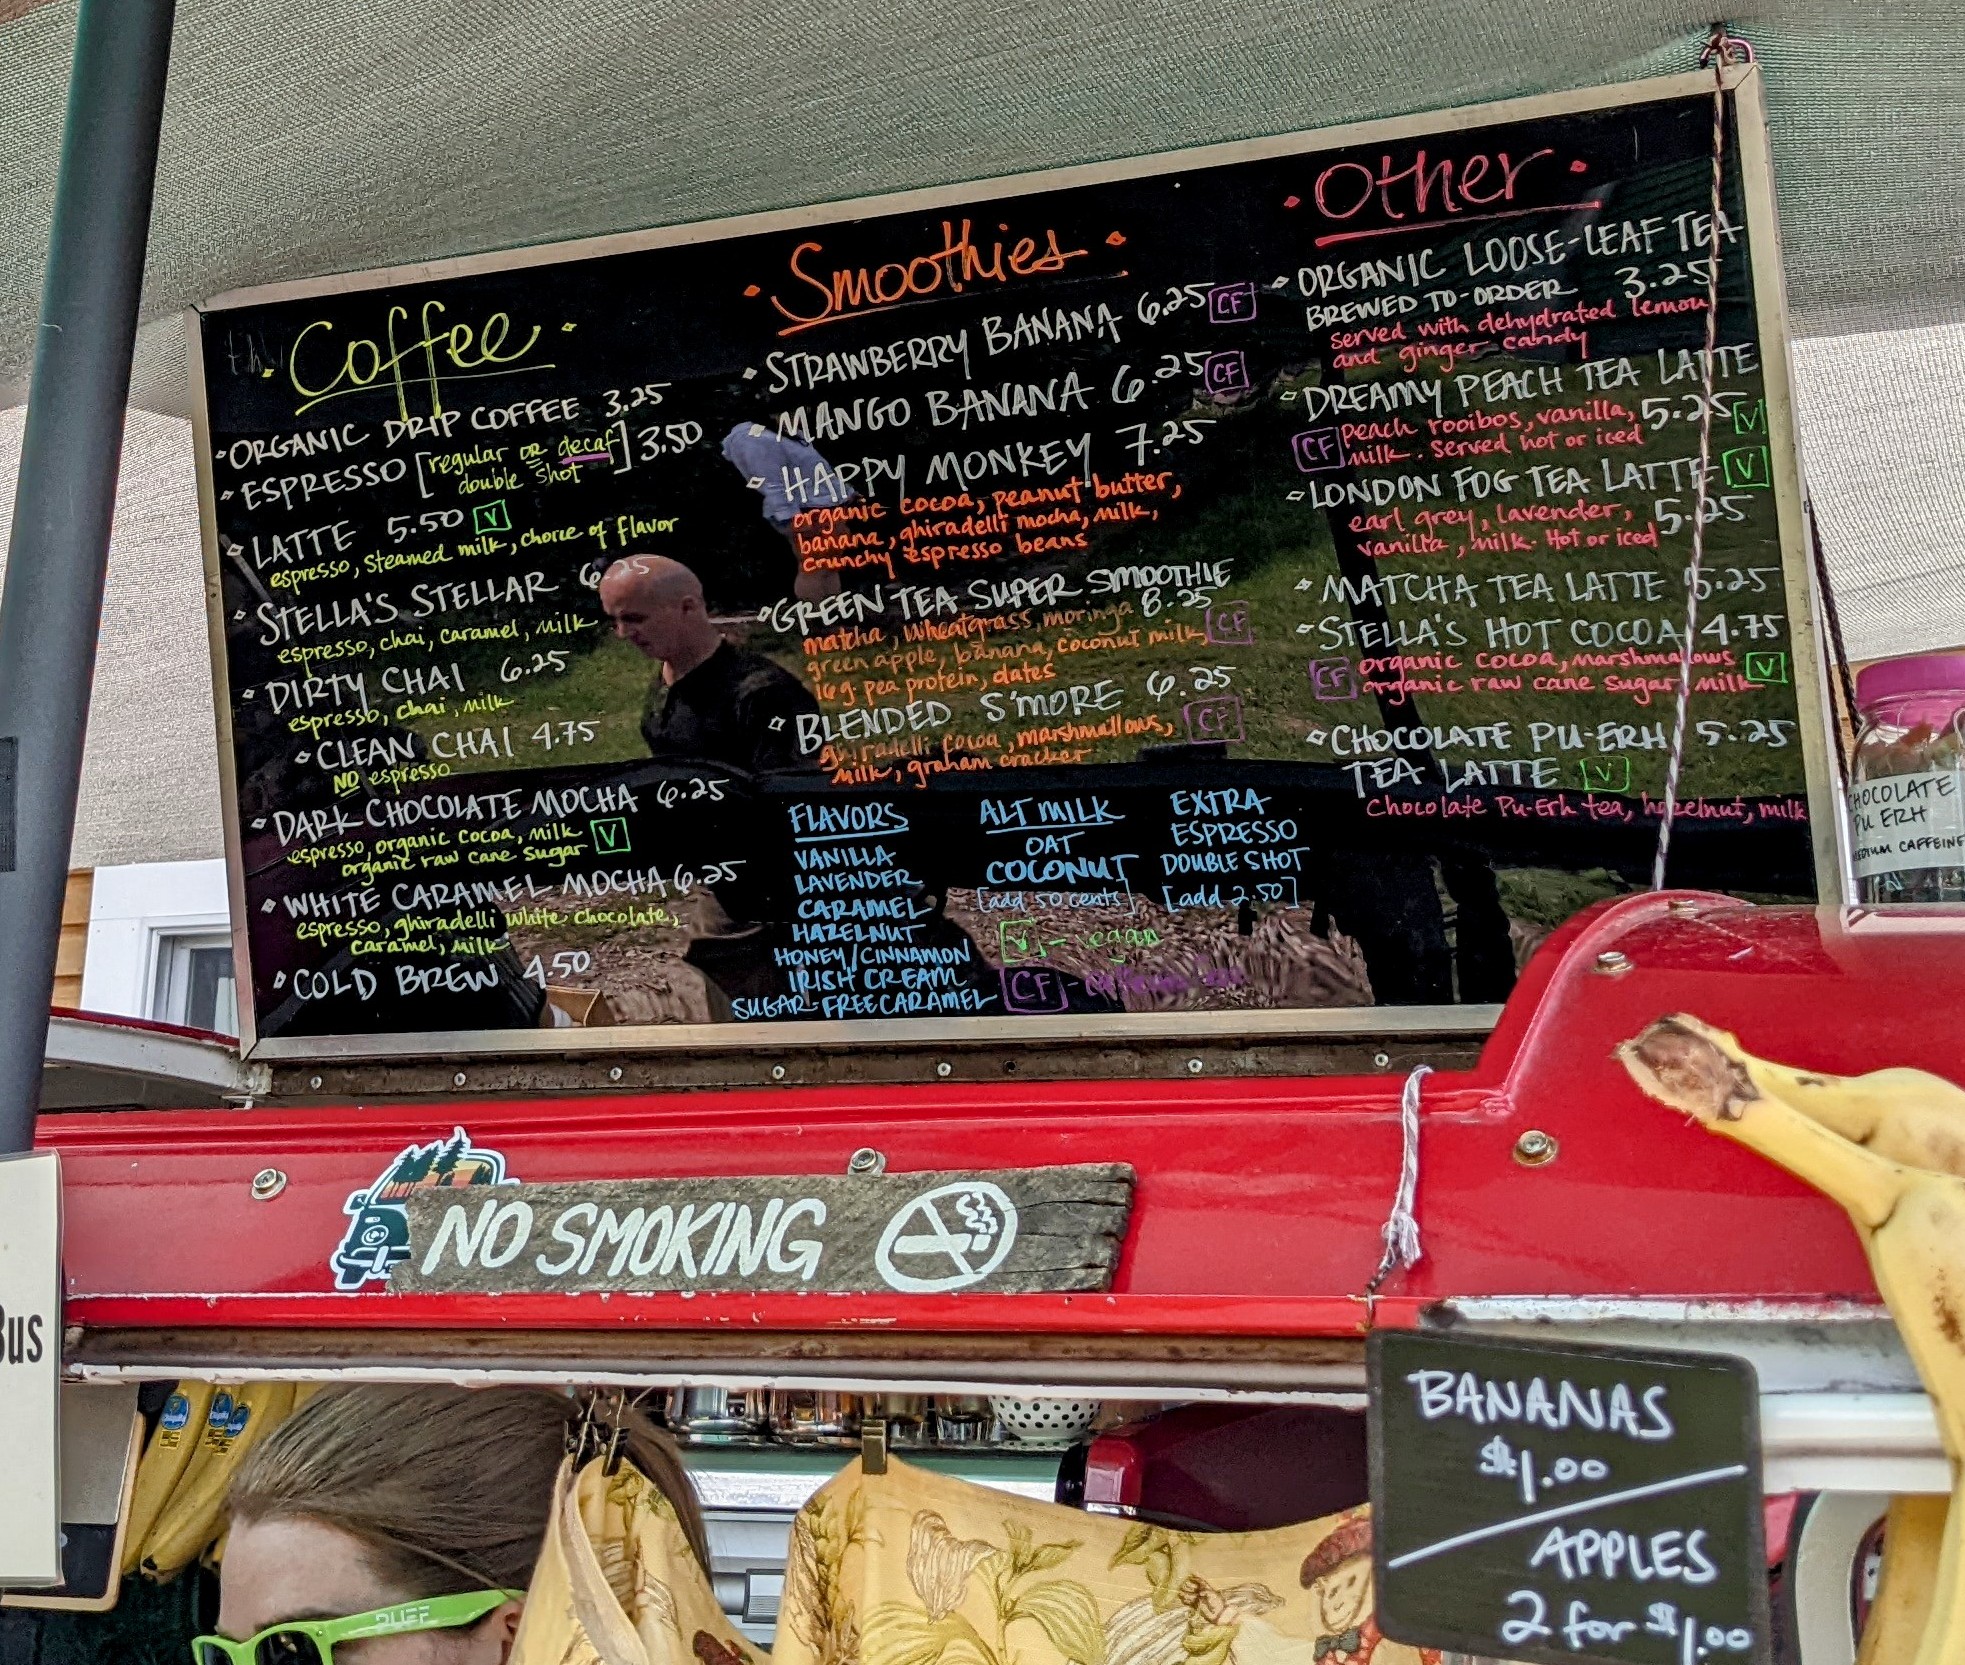 Coffee
ORGANIC DRIP COFFEE 3.25
ESPRESSO [regular OR decaf
double shot] 3.50
LATTE 5.50 V
espresso, steamed milk, choice of flavor
STELLA'S STELLAR 6.25
espresso, chai, caramel, milk
DIRTY CHAI 6.25
espresso, chai, milk
CLEAN CHAI 4.75
NO espresso
DARK CHOCOLATE MOCHA 6.25
espresso, organic cocoa, milk
organic raw cane sugar V
WHITE CARAMEL MOCHA 6.25
espresso, ghiradelli white chocolate,
caramel, milk
COLD BREW 4.50
Smoothies
STRAWBERRY BANANA 6.25 CF
MANGO BANANA 6.25 CF
HAPPY MONKEY 7.25
organic cocoa, peanut butter,
banana, ghiradelli mocha, milk,
crunchy espresso beans
GREEN TEA SUPER SMOOTHIE
8.25
matcha, wheatgrass, moringa
green apple, banana, coconut milk, CF
16g pea protein, dates
BLENDED S'MORE 6.25
ghiradelli cocoa, marshmallows, CF
milk, graham cracker
FLAVORS
VANILLA
LAVENDER
CARAMEL
HAZELNUT
HONEY/CINNAMON
IRISH CREAM
SUGAR-FREE CARAMEL
ALT MILK
OAT
COCONUT
[add 50 cents]
V - vegan
CF -
EXTRA
ESPRESSO
DOUBLE SHOT
[add 2.50]
Other
ORGANIC LOOSE-LEAF TEA
BREWED TO-ORDER 3.25
served with dehydrated lemon
and ginger candy
DREAMY PEACH TEA LATTE
peach rooibos, vanilla, 5.25 V
CF milk. Served hot or iced
LONDON FOG TEA LATTE V
earl grey, lavender, 5.25
vanilla, milk. Hot or iced
MATCHA TEA LATTE 5.25
STELLA'S HOT COCOA 4.75
CF organic cocoa, marshmallows
organic raw cane sugar, milk V
CHOCOLATE PU-ERH 5.25
TEA LATTE V
Chocolate Pu-Erh tea, hazelnut, milk
CHOCOLATE
PU ERH
MEDIUM CAFFEINE
NO SMOKING
Bus
BANANAS
$1.00
APPLES
2 for $1.00